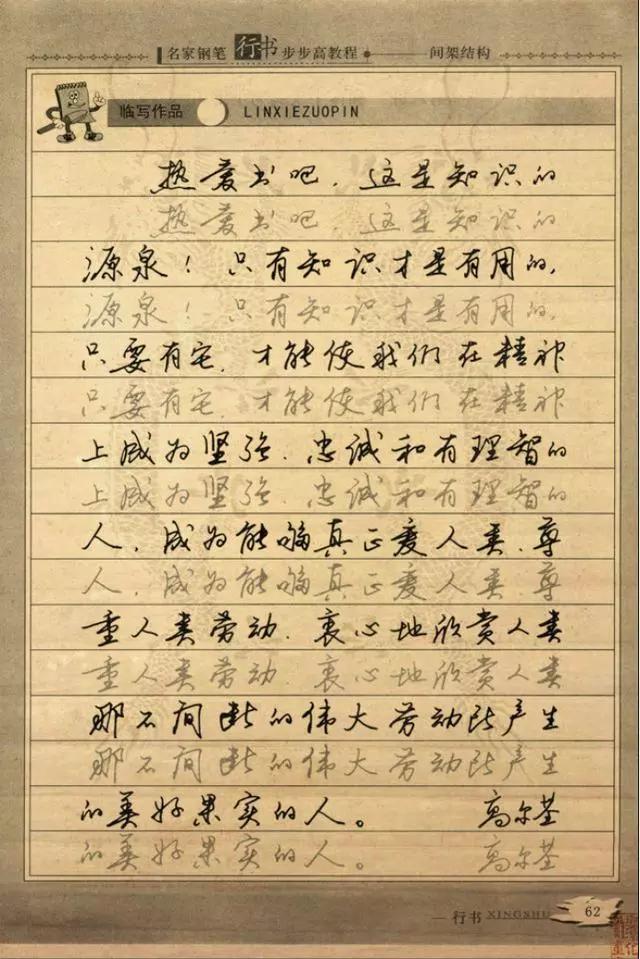 名家钢笔行书步步高教程 间架结构
临写作品 LINXIEZUOPIN
热爱书吧,这是知识的
热爱书吧,这是知识的
源泉!只有知识才是有用的,
源泉!只有知识才是有用的,
只要有它,才能使我们在精神
只要有它,才能使我们在精神
上成为坚强、忠诚和有理智的
上成为坚强、忠诚和有理智的
人,成为能够真正爱人类、尊
人,成为能够真正爱人类、尊
重人类劳动、衷心地欣赏人类
重人类劳动、衷心地欣赏人类
那不间断的伟大劳动所产生
那不间断的伟大劳动所产生
的美好果实的人。 高尔基
的美好果实的人。 高尔基
行书 XINGSHU 62